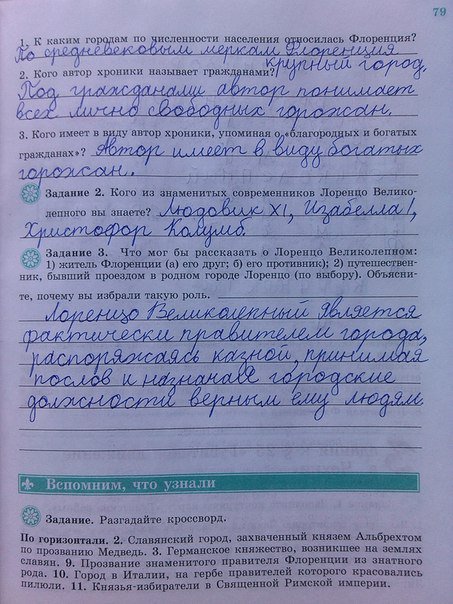 79
1. К каким городам по численности населения относилась Флоренция?
По средневековым меркам Флоренция
крупный город.
2. Кого автор хроники называет гражданами?
Под гражданами автор понимает
всех лично свободных горожан.
3. Кого имеет в виду автор хроники, упоминая о «благородных и богатых
гражданах»? Автор имеет в виду богатых
горожан.
Задание 2. Кого из знаменитых современников Лоренцо Велико-
лепного вы знаете? Людовик XI, Изабелла I,
Христофор Колумб
Задание 3. Что мог бы рассказать о Лоренцо Великолепном:
1) житель Флоренции (а) его друг; б) его противник); 2) путешествен-
ник, бывший проездом в родном городе Лоренцо (по выбору). Объясни-
те, почему вы избрали такую роль.
Лоренцо Великолепный является
фактически правителем города,
распоряжаясь казной, принимая
послов и назначая городские
должности верным ему людям.
Вспомним, что узнали
Задание. Разгадайте кроссворд.
По горизонтали. 2. Славянский город, захваченный князем Альбрехтом
по прозванию Медведь. 3. Германское княжество, возникшее на землях
славян. 9. Прозвание знаменитого правителя Флоренции из знатного
рода. 10. Город в Италии, на гербе правителей которого красовались
пилюли. 11. Князья-избиратели в Священной Римской империи.